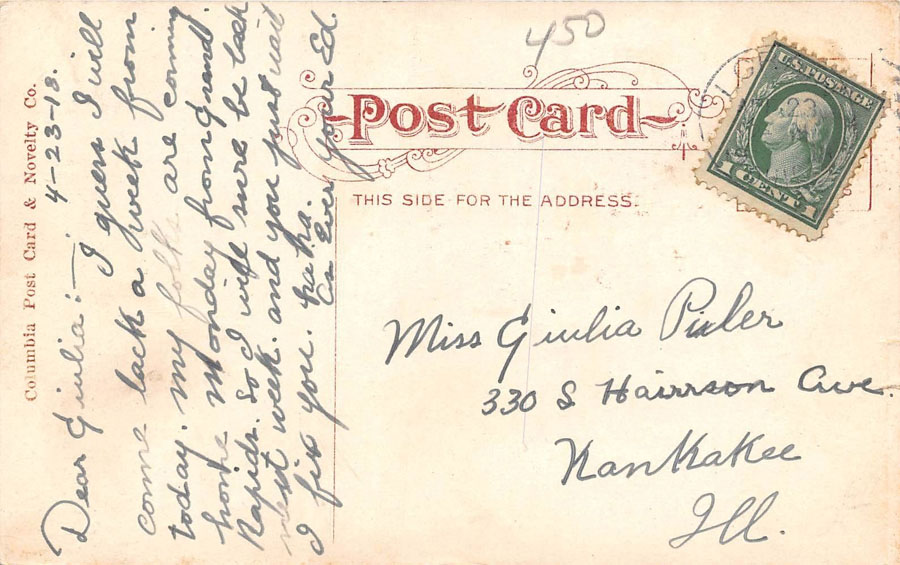 450
Post Card
THIS SIDE FOR THE ADDRESS.
U.S. POSTAGE
1 CENT 1
Columbia Post Card & Novelty Co.
4-23-13.
Dear Giulia:-
I guess I will
come back a week from
today. my folks are coming
home monday from grand
Rapids. So I will sure be back
next week. and you just wait
I fix you. ha ha.
Ever your Ed.
Miss Giulia Piler
330 S Hairrson Ave.
Kankakee
Ill.